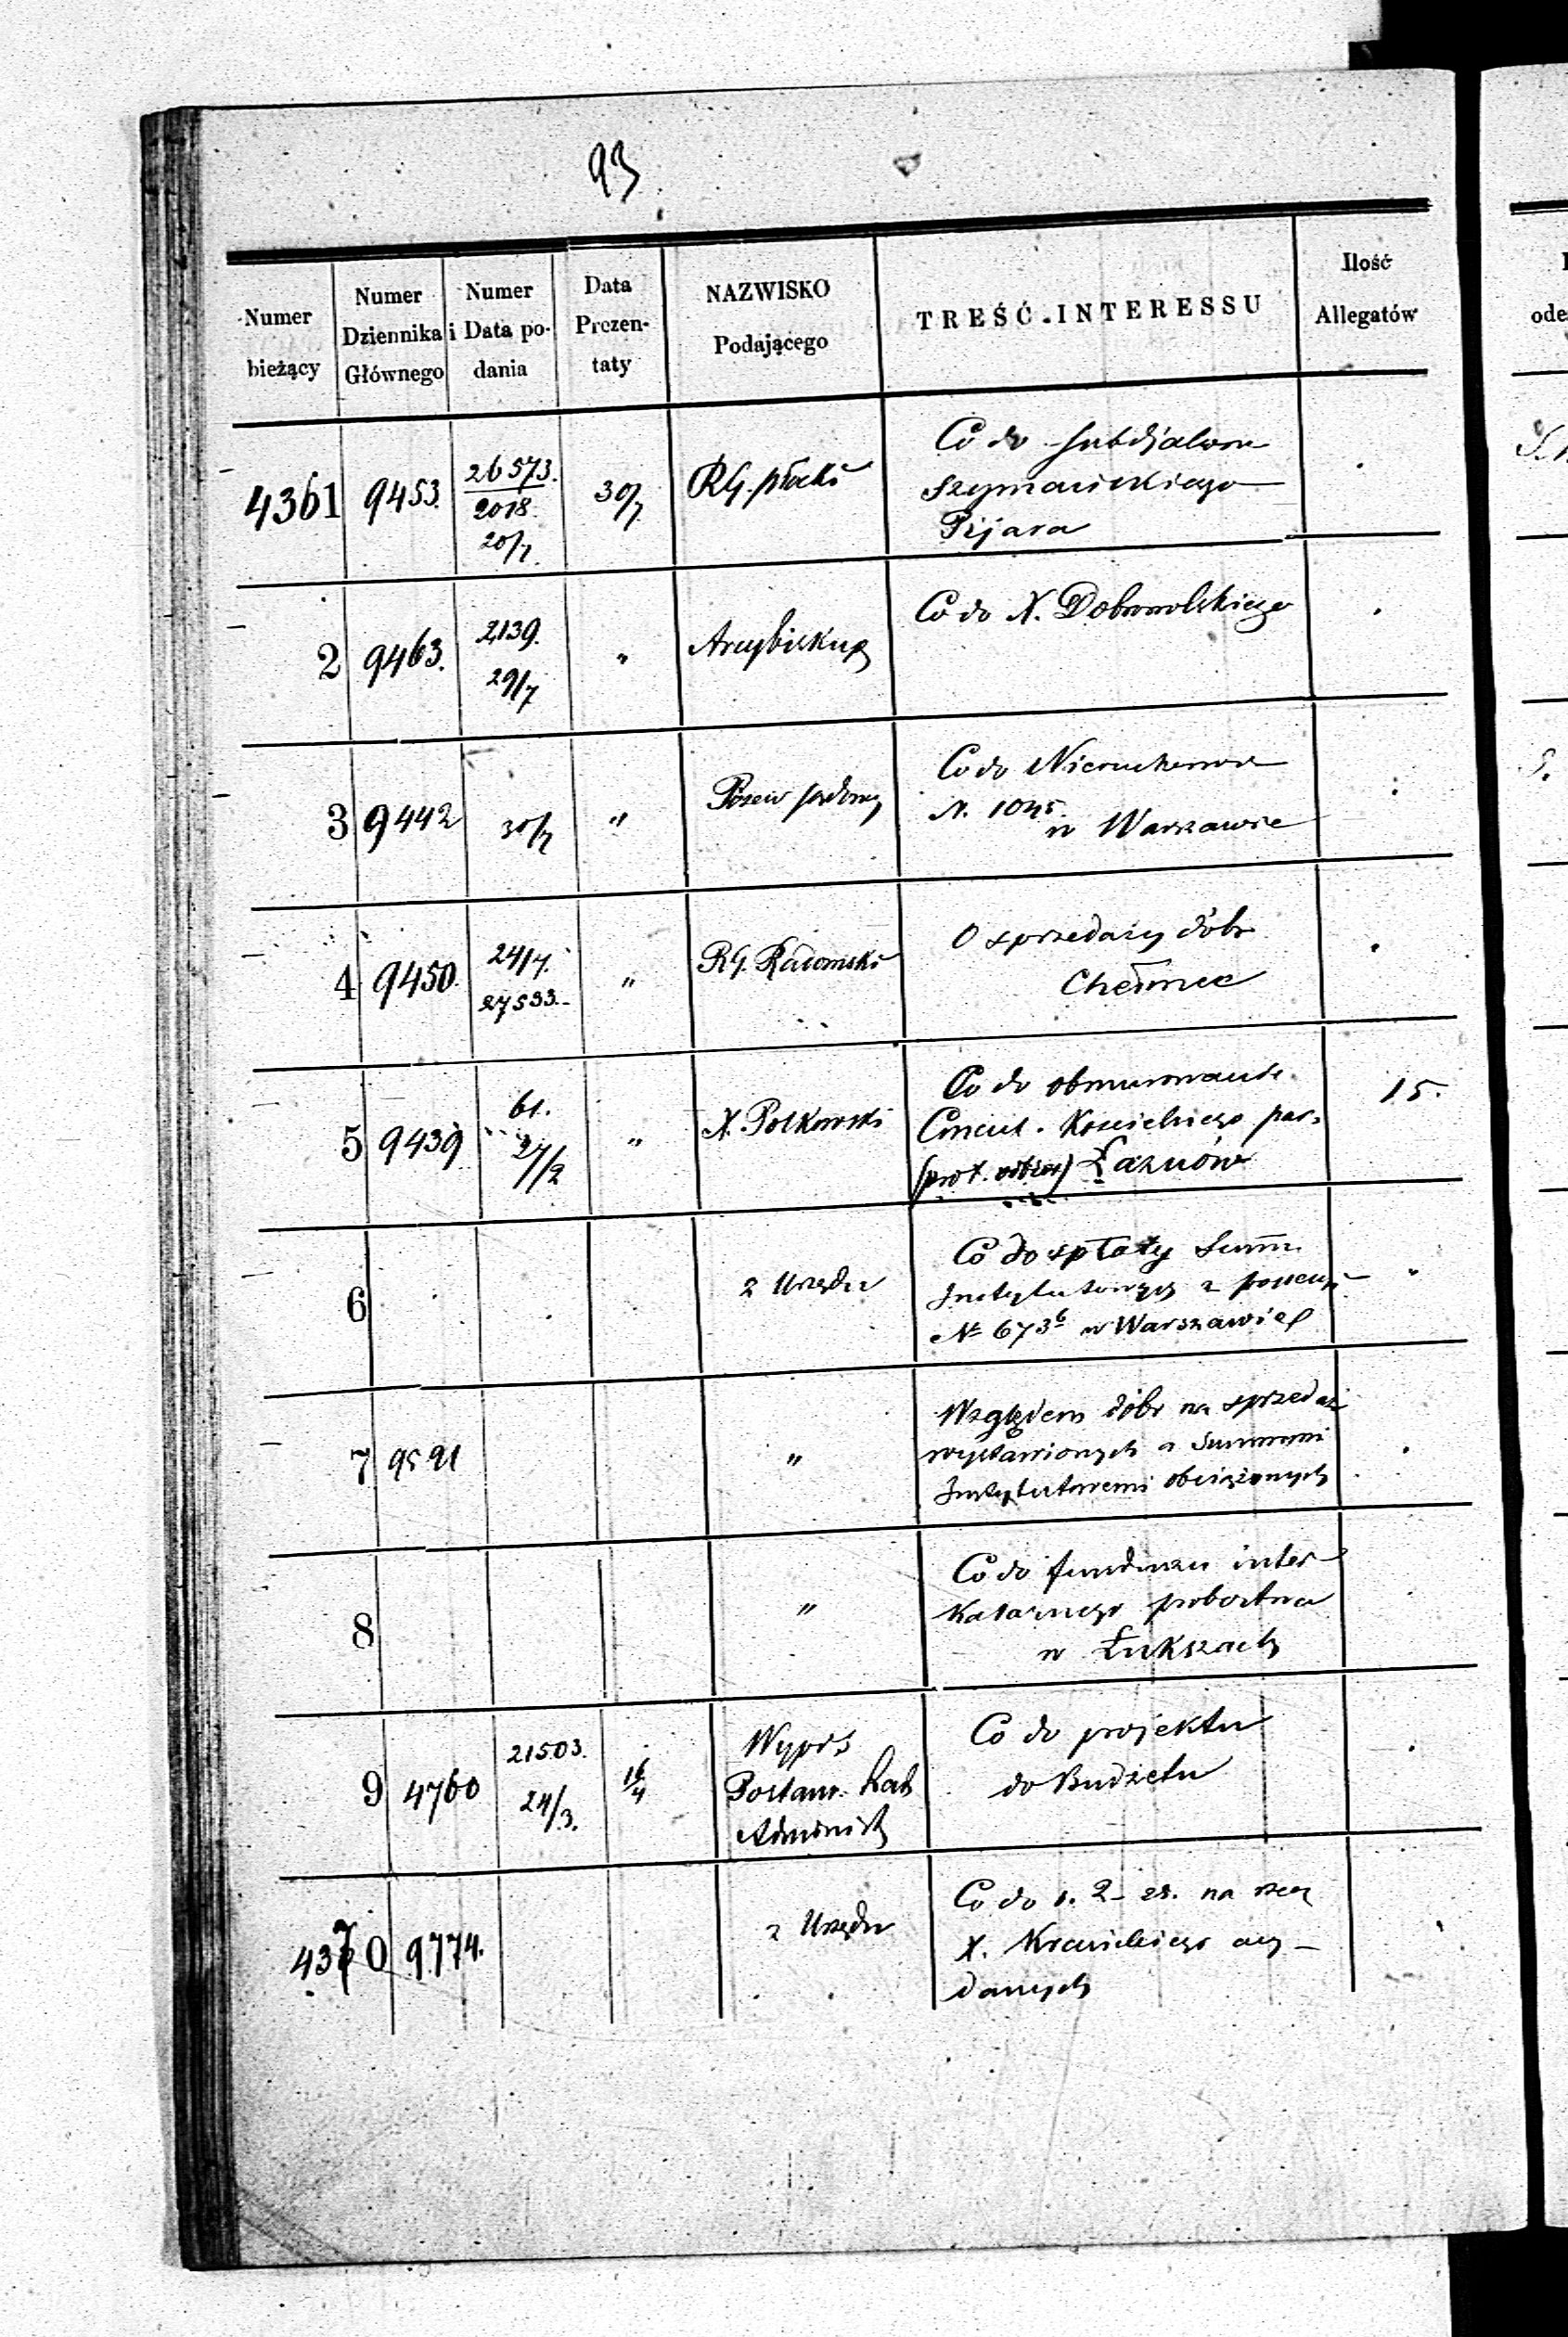 93
Numer bieżący
Numer Dziennika Głównego
Numer i Data podania
Data Prezentaty
NAZWISKO Podającego
TREŚĆ INTERESSU
Ilość Allegatów
4361 9453. 26573. 30/7 RG. płocki Co do
2018. Szymanickiego
20/7. Pijara
2 9463. 2139. " Arcybiskup Co do X. Dobrowolskiego
29/7
3 9442 30/7 " Pozew sądowy Co do
N. 1045.
w Warszawie
4 9450. 24/7. " RG. Radomski O sprzedaży dóbr
27533.
5 9439 61. " X. Polkowski Co do obmurowania 15.
27/2 Cment. Kościelnego par.
(prot. odbior) Łaznów
6 z Urzędu Co do spłaty Summ
Instytutowych z possessyi
№ 673b w Warszawie
7 9591 " Względem dóbr na sprzedaż
wystawionych a Summami
Instytutowemi obciążonych
8 " Co do funduszu inter-
kalarnego probostwa
w Łukszach
9 4760 21503. 16/4 Wypis Co do projektu
24/3. Postanw. Rady do Budżetu
Administ
4370 9774. z Urzędu Co do s. 2 - rs. na rzecz
X.
danych